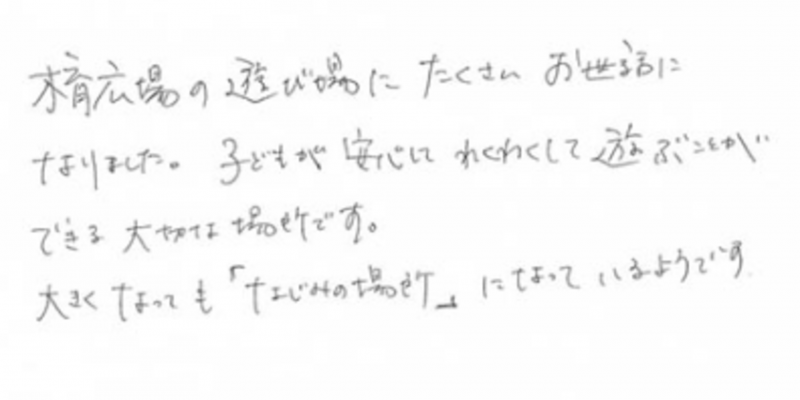 木育広場の遊び場にたくさんお世話に
なりました。子どもが安心してわくわくして遊ぶことが
できる大切な場所です。
大きくなっても「なじみの場所」になっているようです